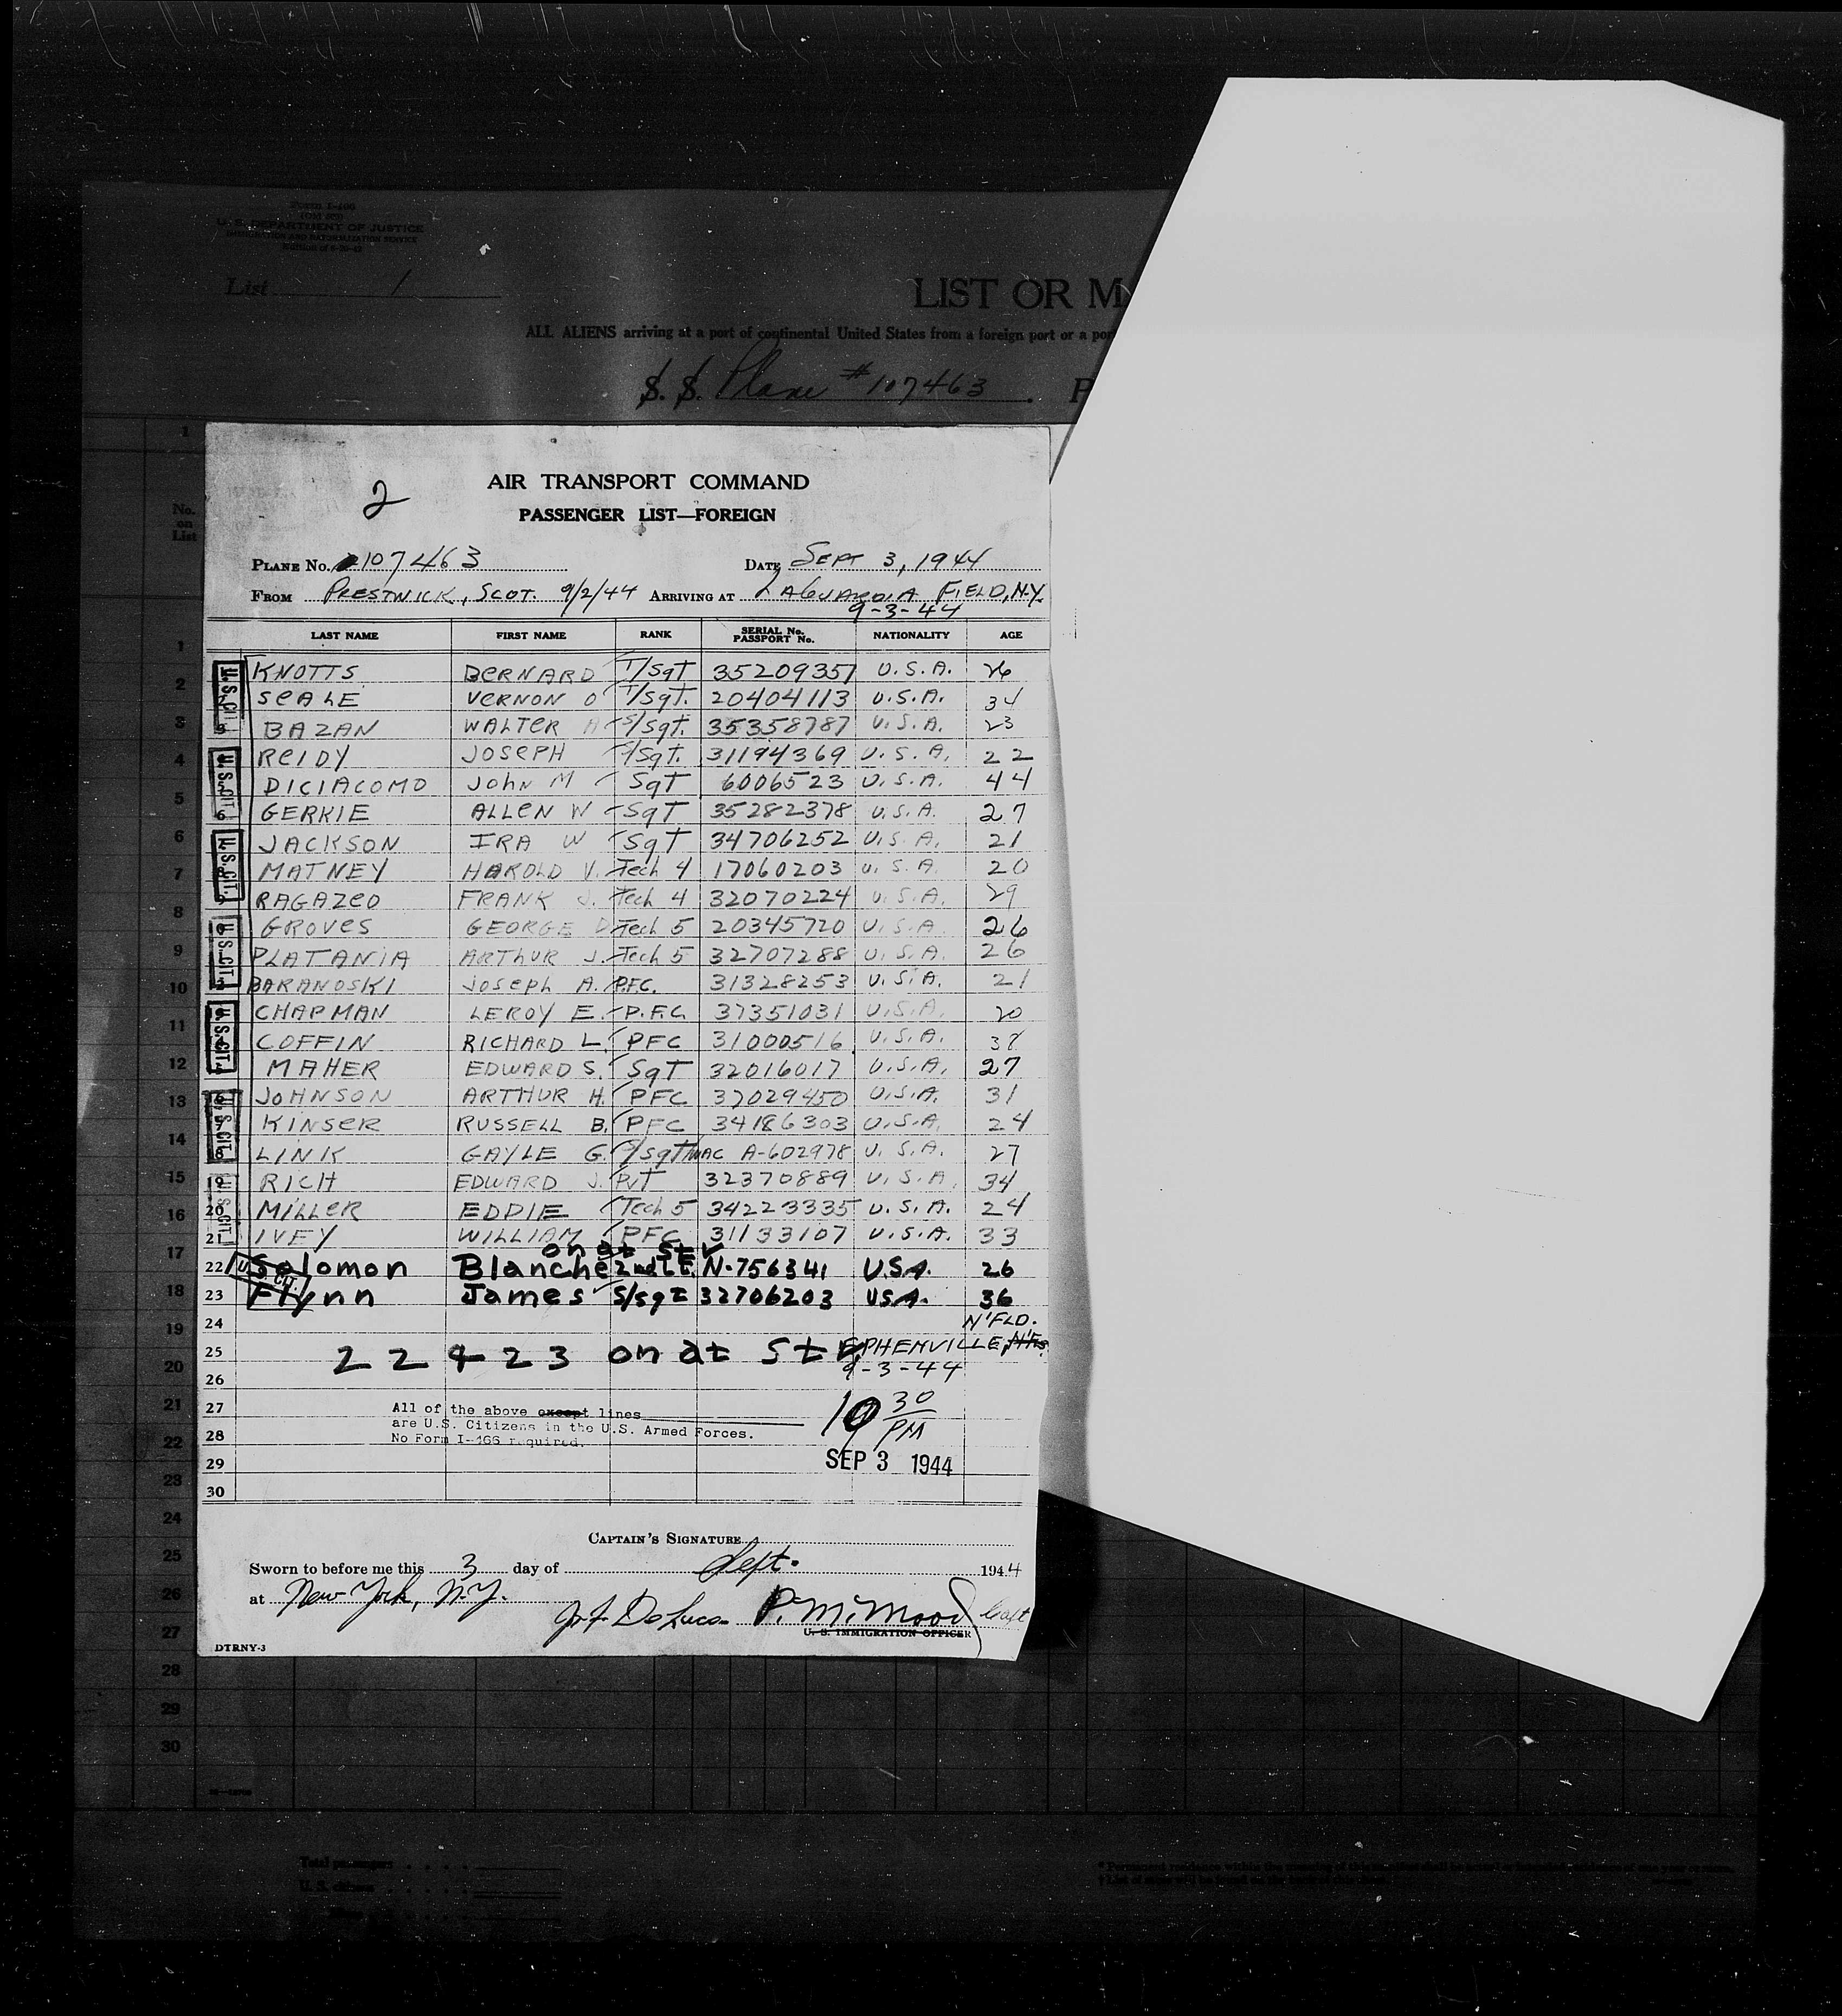 Form I-466
U. S. DEPARTMENT OF JUSTICE
IMMIGRATION AND NATURALIZATION SERVICE
List 1
LIST OR M
ALL ALIENS arriving at a port of continental United States from a foreign port or a por
S. S. Plane #107463
No. on List
2
AIR TRANSPORT COMMAND
PASSENGER LIST—FOREIGN
PLANE No. 107463 DATE SEPT 3, 1944
FROM PRESTWICK, SCOT. 9/2/44 ARRIVING AT LAGUARDIA FIELD, N.Y.
9-3-44
LAST NAME FIRST NAME RANK SERIAL No. PASSPORT No. NATIONALITY AGE
KNOTTS BERNARD T/SgT 35209357 U.S.A. 26
SEALE VERNON O T/SgT. 20404113 U.S.A. 34
BAZAN WALTER A S/SgT. 35358787 U.S.A. 23
REIDY JOSEPH S/SgT. 31194369 U.S.A. 22
DICIACOMO JOHN M SgT 6006523 U.S.A. 44
6 GERKIE ALLEN W SgT 35282378 U.S.A. 27
JACKSON IRA W SgT 34706252 U.S.A. 21
MATNEY HAROLD V. Tech 4 17060203 U.S.A. 20
RAGAZEO FRANK J. Tech 4 32070224 U.S.A. 29
GROVES GEORGE D Tech 5 20345720 U.S.A. 26
PLATANIA ARTHUR J. Tech 5 32707288 U.S.A. 26
BARANOSKI JOSEPH A. P.F.C. 31328253 U.S.A. 21
CHAPMAN LEROY E. P.F.C. 37351031 U.S.A. 20
COFFIN RICHARD L. PFC 31000516 U.S.A. 38
MAHER EDWARD S. SgT 32016017 U.S.A. 27
JOHNSON ARTHUR H. PFC 37029450 U.S.A. 31
KINSER RUSSELL B. PFC 34186303 U.S.A. 24
8 LINK GAYLE G. S/SgT WAC A-602978 U.S.A. 27
19 RICH EDWARD J. PVT 32370889 U.S.A. 34
20 MILLER EDDIE Tech 5 34223335 U.S.A. 24
21 IVEY WILLIAM PFC 31133107 U.S.A. 33
on at St V
22 Solomon Blanche 2nd Lt. N-756341 U.S.A. 26
23 Flynn James S/sgt 32706203 USA. 36
24 N'FLD.
25 22 & 23 on at St EPHENVILLE, N'F
9-3-44
26
27 All of the above except lines
are U.S. Citizens in the U.S. Armed Forces.
28 No Form I-466 required.
10 30 PM
29 SEP 3 1944
30
U.S. CIT.
U.S. CIT.
U.S. CIT.
U.S. CIT.
U.S. CIT.
U.S. CIT.
U.S. CIT.
U.S. CIT.
CAPTAIN'S SIGNATURE
Sworn to before me this 3 day of Sept. 1944
at New York, N.Y.
J. F. DeLuca P. M. Mood Capt
U. S. IMMIGRATION OFFICER
DTRNY-3
1
1
2
3
4
5
6
7
8
9
10
11
12
13
14
15
16
17
18
19
20
21
22
23
24
25
26
27
28
29
30
Total passengers
U. S. citizens